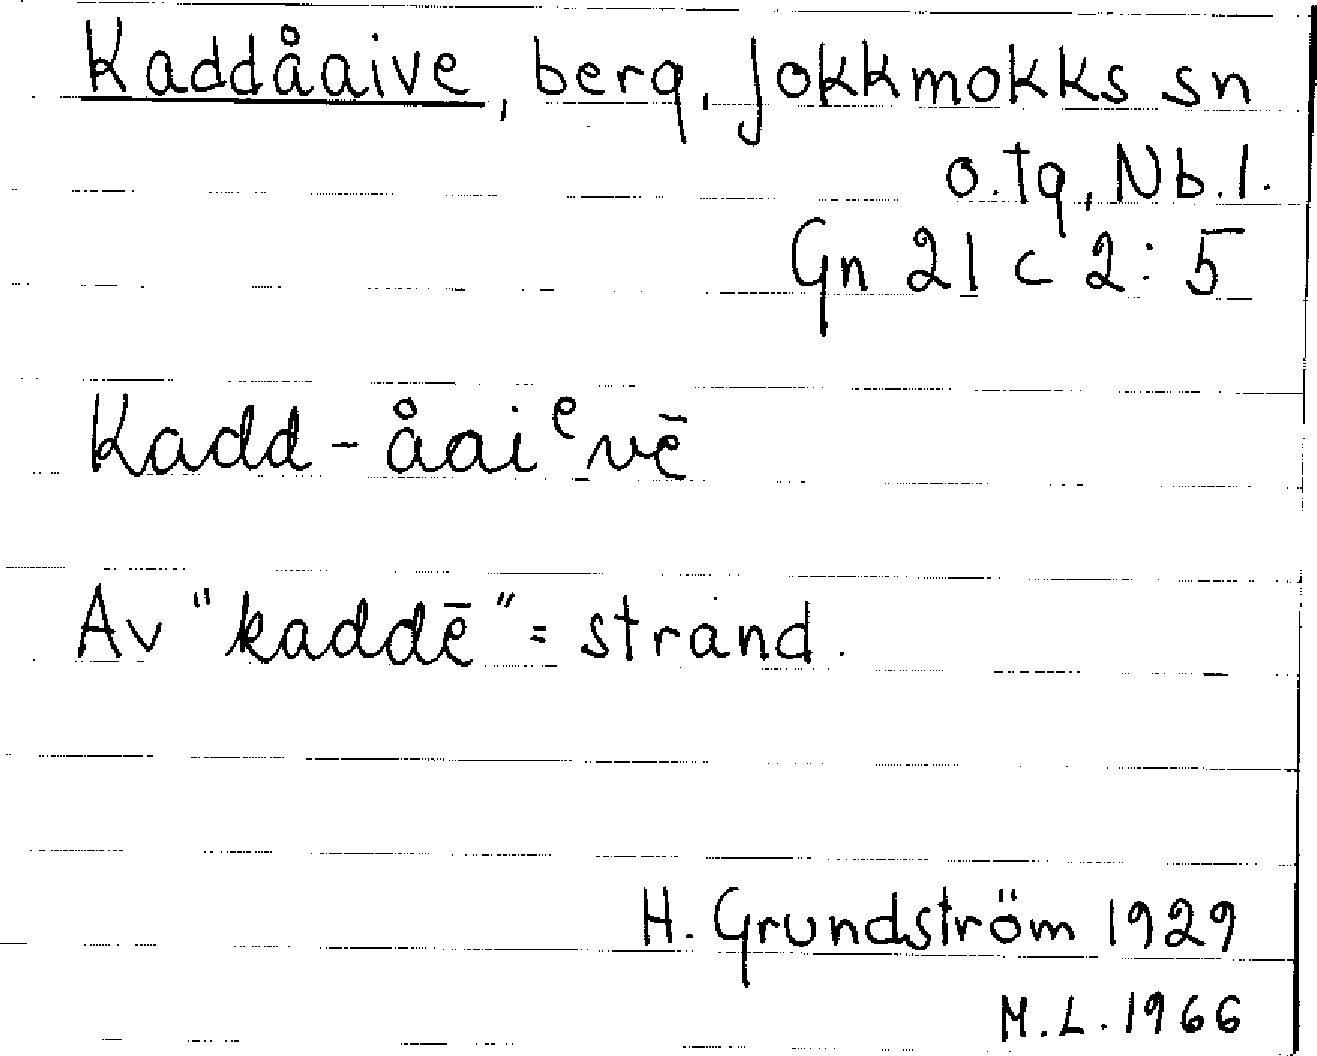 Kaddåaive, berg, Jokkmokks sn
o.tg, Nb.l.
Gn 21 c 2:5
Kadd-åaiᵉvē
Av "kaddē" = strand.
H. Grundström 1929
M.L. 1966